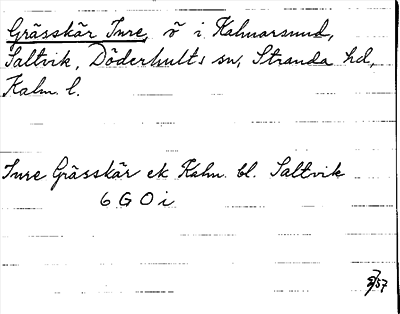 Grässkär Inre, ö i Kalmarsund,
Saltvik, Döderhults sn, Stranda hd,
Kalm. l.
Inre Grässkär ek Kalm. bl. Saltvik
6 G O i